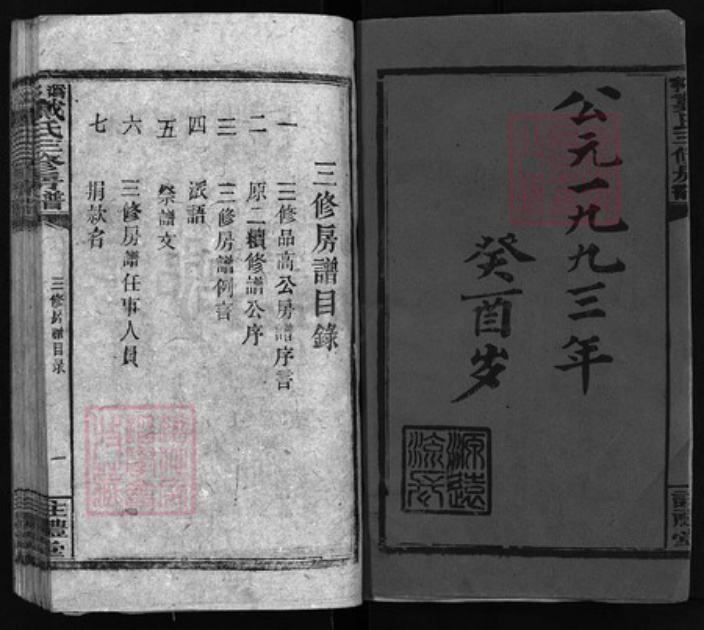 公元一九九三年
癸酉岁
源遠
流长
三修房譜目錄
一 三修品高公房譜序言
二 原二續修譜公序
三 三修房譜例言
四 派語
五 祭譜文
六 三修房譜任事人員
七 捐款者
戴氏三修房譜
三修房譜目录
一